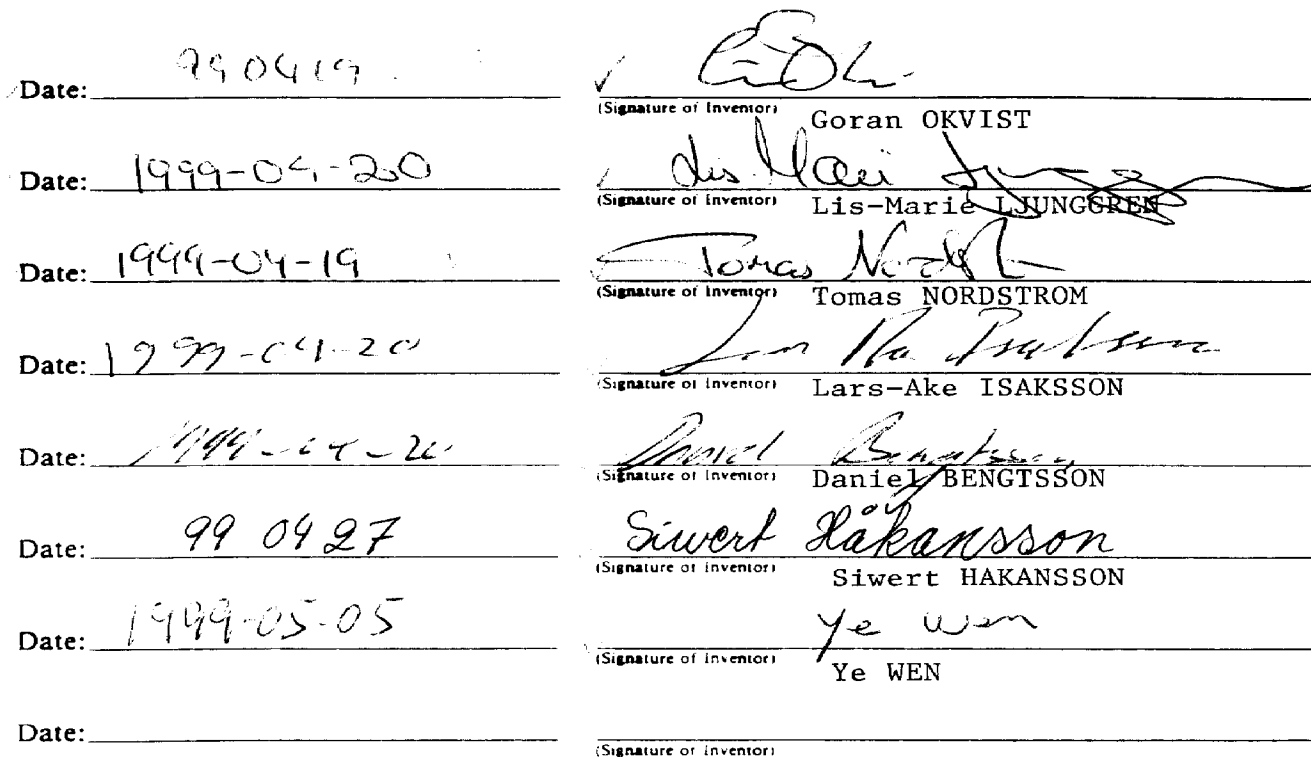 Date: 990419
(Signature of Inventor) Goran OKVIST
Date: 1999-04-20 Lis-Marie
(Signature of Inventor) Lis-Marie LJUNGGREN
Date: 1999-04-19 Tomas
(Signature of Inventor) Tomas NORDSTROM
Date: 1999-04-20
(Signature of Inventor) Lars-Ake ISAKSSON
Date: 1999-04-20 Daniel Bengtsson
(Signature of Inventor) Daniel BENGTSSON
Date: 99 04 27 Siwert Håkansson
(Signature of Inventor) Siwert HAKANSSON
Date: 1999-05-05 Ye Wen
(Signature of Inventor) Ye WEN
Date:
(Signature of Inventor)